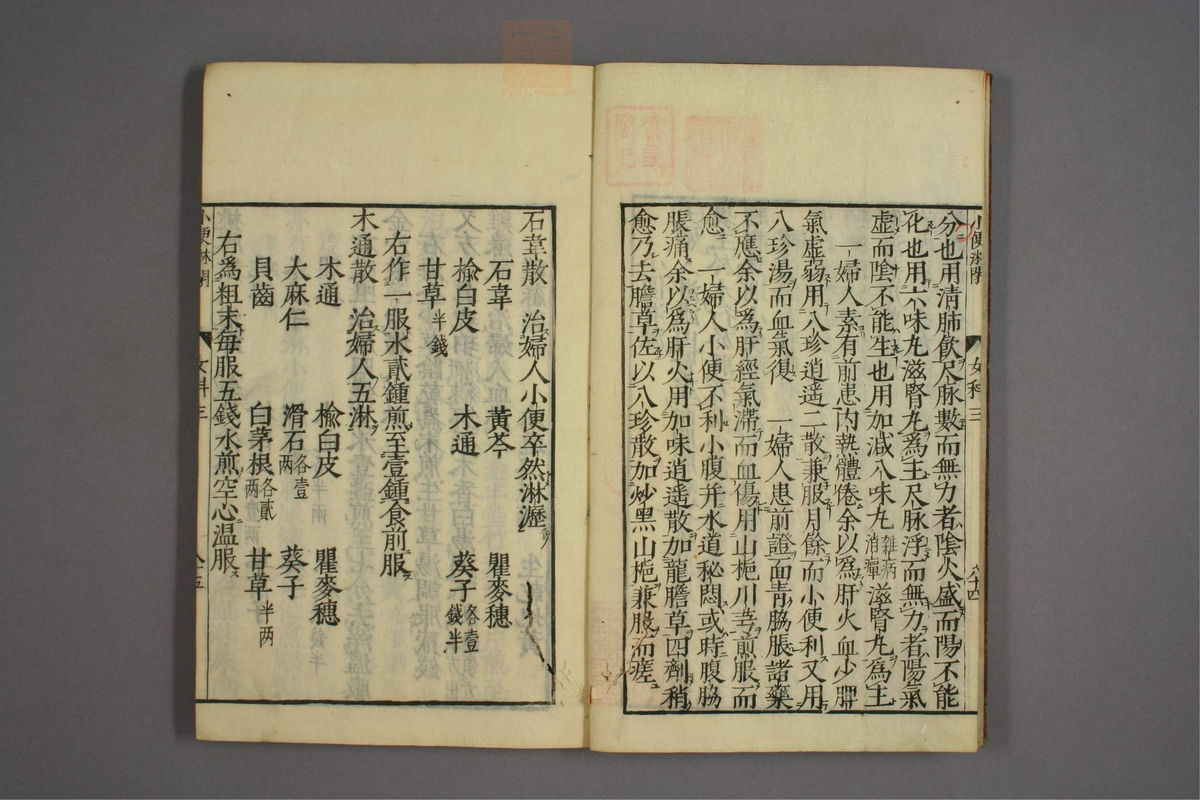 小便淋閉
女科三
六十四
分也用清肺飲尺脉數而無力者陰火盛而陽不能
化也用六味丸滋腎丸爲主尺脉浮而無力者陽氣
虛而陰不能生也用加減八味丸雜病消癉滋腎丸爲主
一婦人素有前患内熱體倦余以爲肝火血少脾
氣虛弱用八珍逍遥二散兼服月餘而小便利又用
八珍湯而血氣復 一婦人患前證面青脇脹諸藥
不應余以爲肝經氣滯而血傷用山梔川芎煎服而
愈 一婦人小便不利小腹并水道秘悶或時腹脇
脹痛余以爲肝火用加味逍遥散加龍膽草四劑稍
愈乃去膽草佐以八珍散加炒黑山梔兼服而瘥
石韋散 治婦人小便卒然淋瀝
石韋 黄芩 瞿麥穗
榆白皮 木通 葵子各壹錢半
甘草半錢
右作一服水貳鍾煎至壹鍾食前服
木通散 治婦人五淋
木通 榆白皮 瞿麥穗
大麻仁 滑石各壹兩 葵子
貝齒 白茅根各貳兩 甘草半两
右爲粗末每服五錢水煎空心温服
小便淋閉
女科三